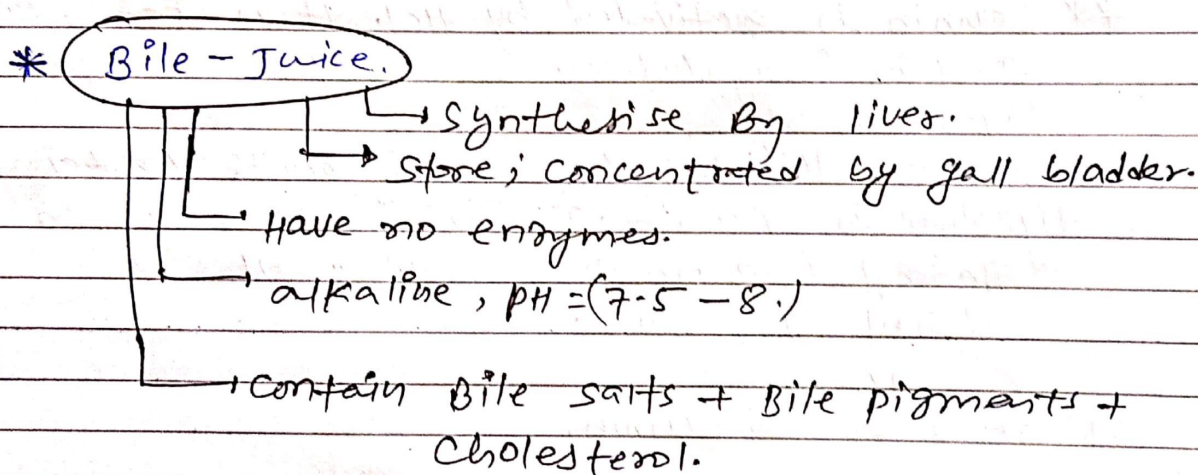 * Bile - Juice.
Synthesise By liver.
Store; concentrated by gall bladder.
Have no enzymes.
alkaline, pH = (7.5 - 8.)
Contain Bile salts + Bile pigments +
Cholesterol.